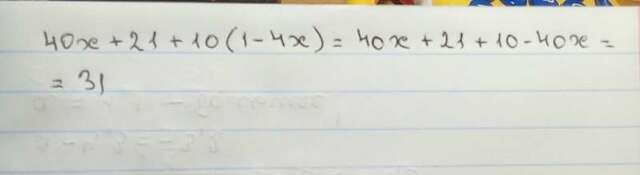 40x + 21 + 10 (1 - 4x) = 40x + 21 + 10 - 40x =
= 31